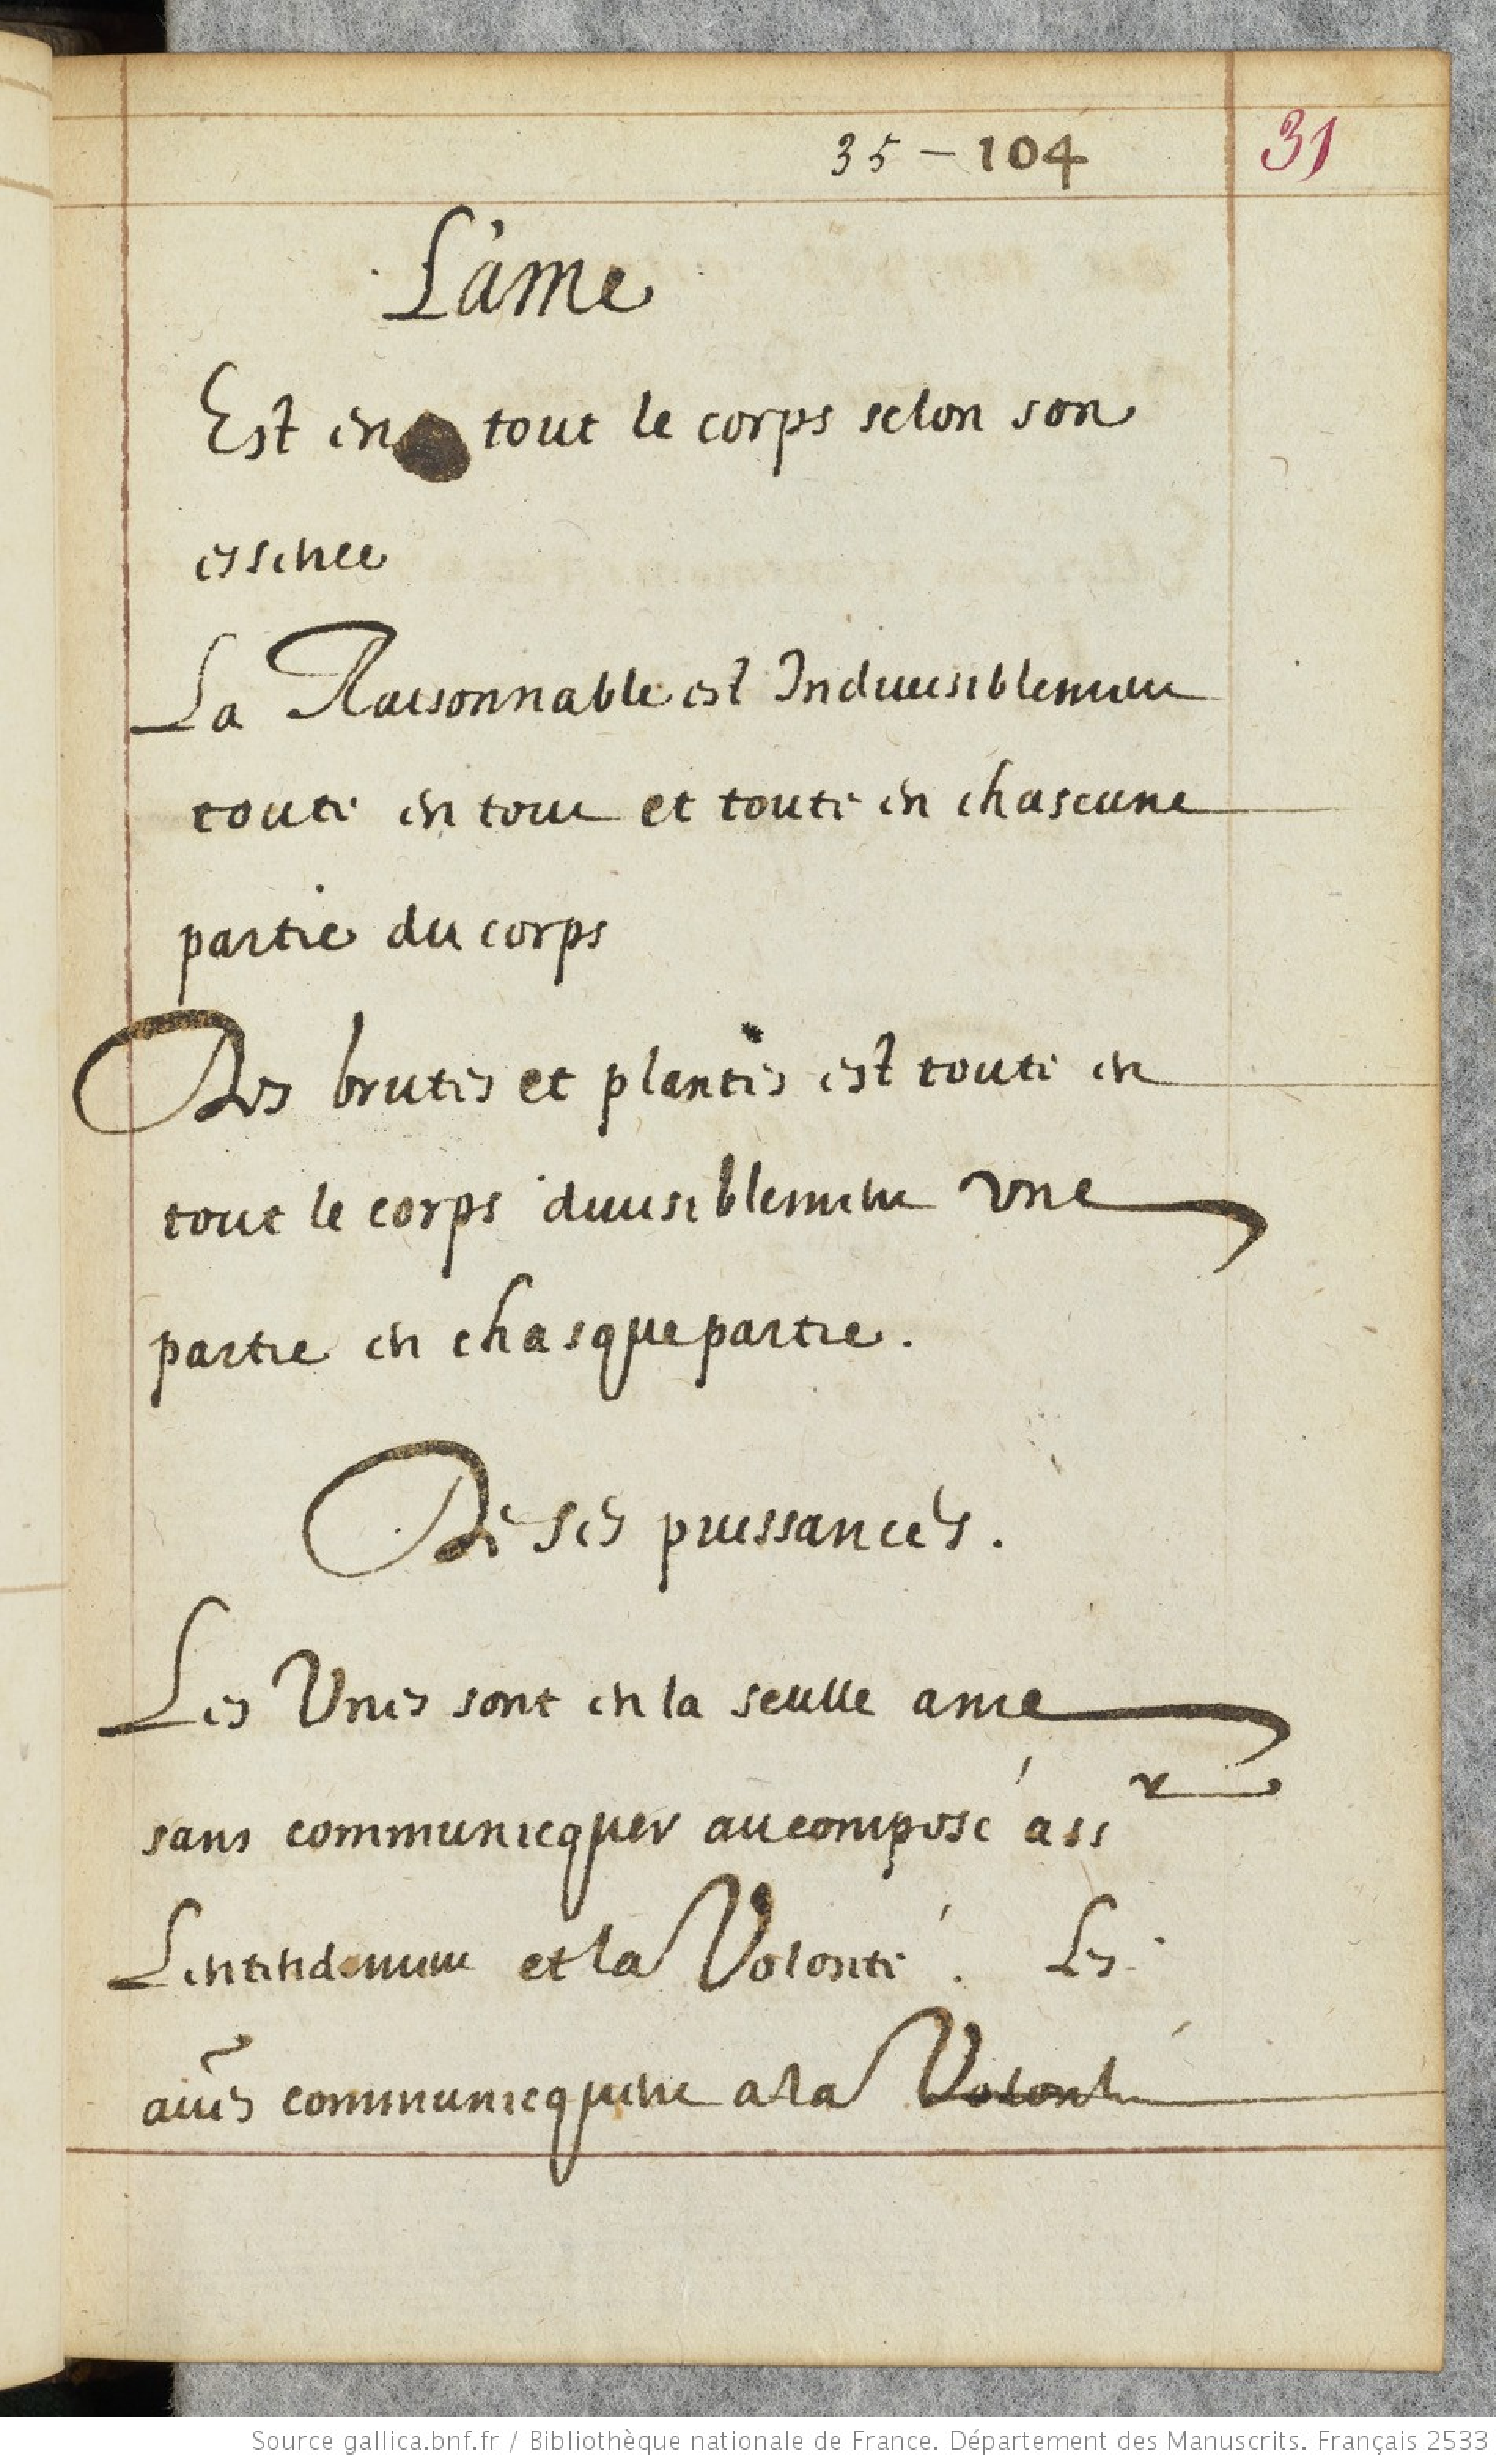 35 - 104
31
L'ame
Est en tout le corps selon son
essence
La Raisonnable est Indiuisiblement
toute en tout et toute en chascune
partie du corps
Des brutes et plantes est toute en
tout le corps diuisiblement vne
partie en chasque partie.
De ses puissances.
Les Vnes sont en la seulle ame
sans communicquer au composé
Lentendement et la Volonté. Les
au͠es communicquent a la Volonté
Source gallica.bnf.fr / Bibliothèque nationale de France. Département des Manuscrits. Français 2533